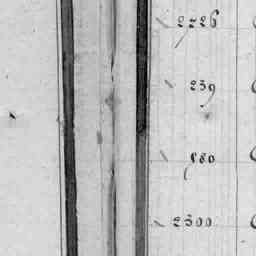 2226
239
580
2300